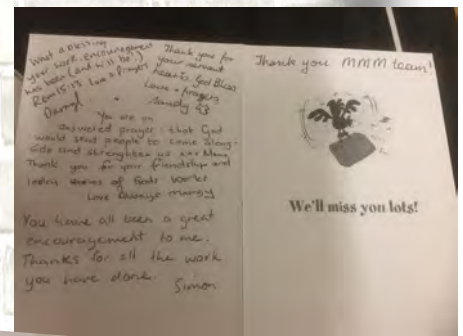 What a blessing
your work, encouragement
has been (and will be!)
Rom 15:13 Love & Prayers
Darryl
Thank you for
your servant
hearts. God Bless
Love & prayers
Sandy
You are an
answered prayer - that God
would send people to come along-
side and strengthen us
Thank you for your friendship and
stories of Gods works
Love always
You have all been a great
encouragement to me.
Thanks for all the work
you have done.
Simon
Thank you MMM team!
We'll miss you lots!